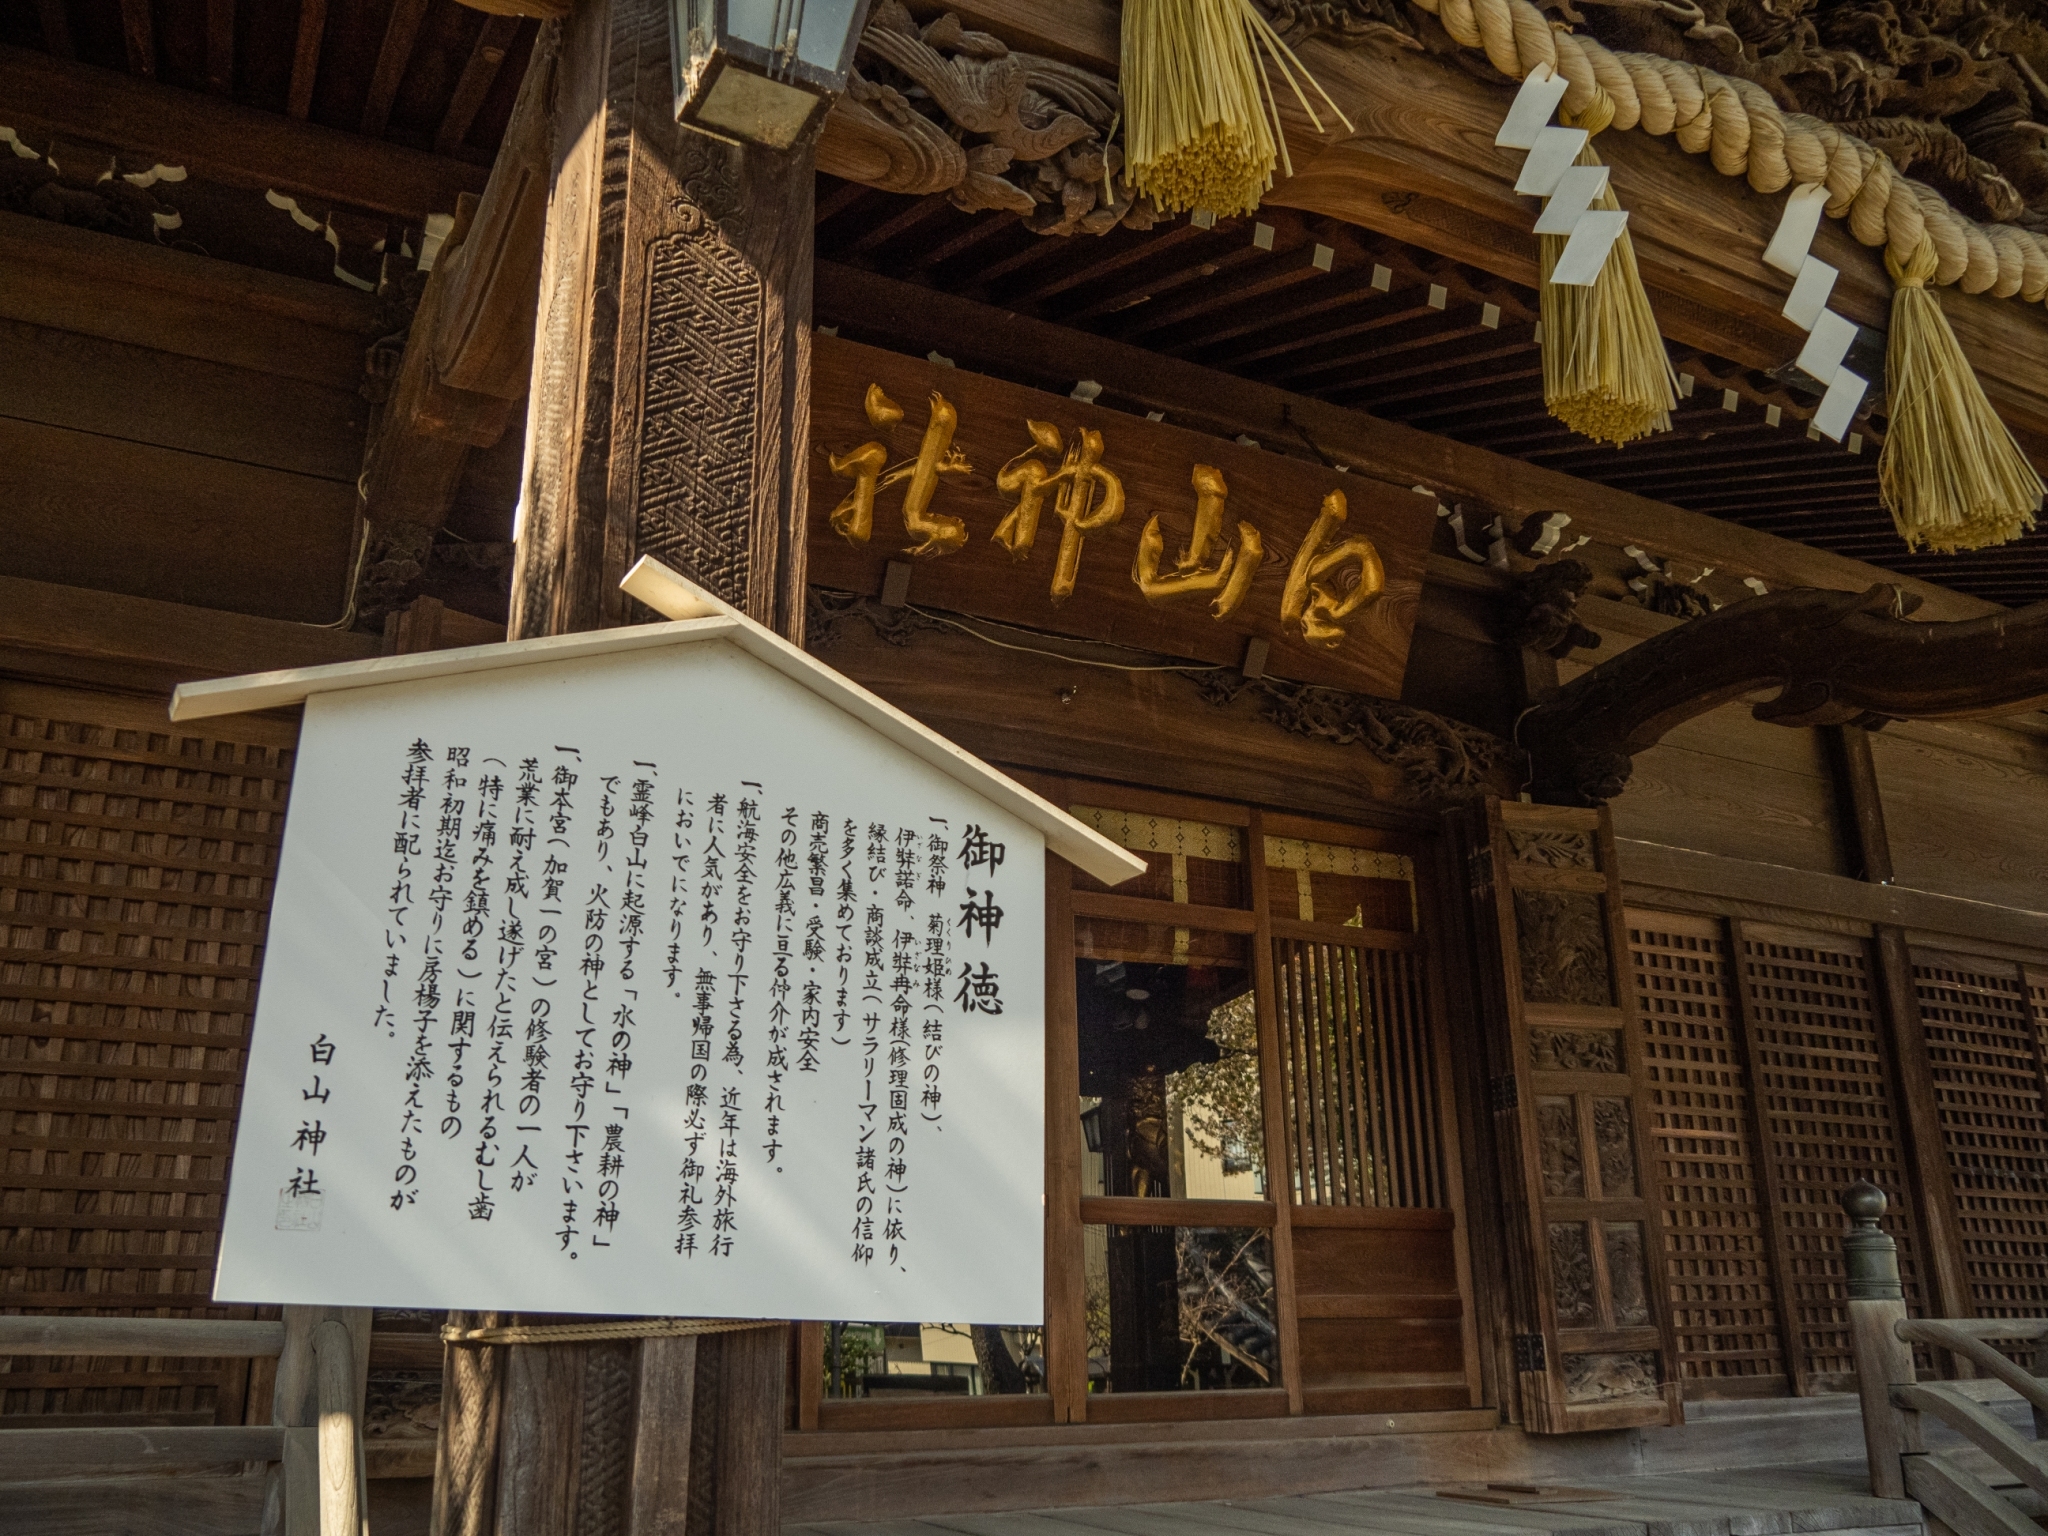 白山神社
御神徳
一、御祭神 菊理姫様(結びの神)、
くくりひめ
伊弉諾命、伊弉冉命様(修理固成の神)に依り、
いざなぎ いざなみ
縁結び・商談成立(サラリーマン諸氏の信仰
を多く集めております)
商売繁昌・受験・家内安全
その他広義に亘る仲介が成されます。
一、航海安全をお守り下さる為、近年は海外旅行
者に人気があり、無事帰国の際必ず御礼参拝
においでになります。
一、霊峰白山に起源する「水の神」「農耕の神」
でもあり、火防の神としてお守り下さいます。
一、御本宮(加賀一の宮)の修験者の一人が
荒業に耐え成し遂げたと伝えられるむし歯
(特に痛みを鎮める)に関するもの
昭和初期迄お守りに房楊子を添えたものが
参拝者に配られていました。
白山神社